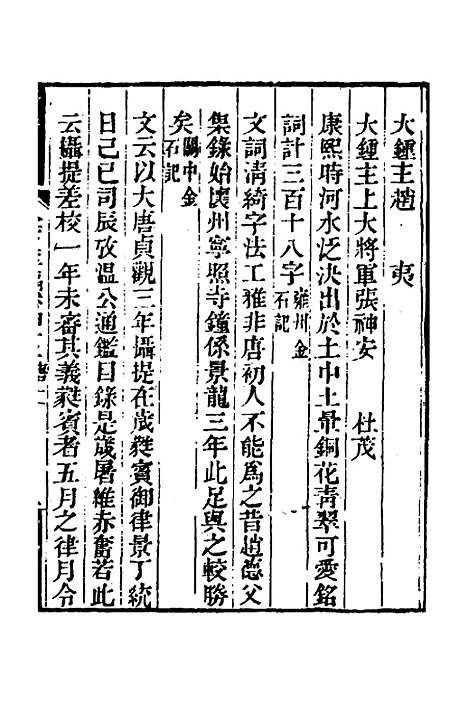 大鍾主趙　夷
大鍾主上大將軍張神安　杜茂
康熙時河水泛決出於土中土暈銅花青翠可愛銘
詞計三百十八字雍州金石記
文詞淸綺字法工雅非唐初人不能爲之昔趙德父
集錄始懷州寧照寺鐘係景龍三年此足與之較勝
矣關中金石記
文云以大唐貞觀三年攝提在歲㽔賓御律景丁統
日己巳司辰攷溫公通鑑目錄是歲屠維赤奮若此
云攝提差校一年未審其義㽔賓者五月之律月令